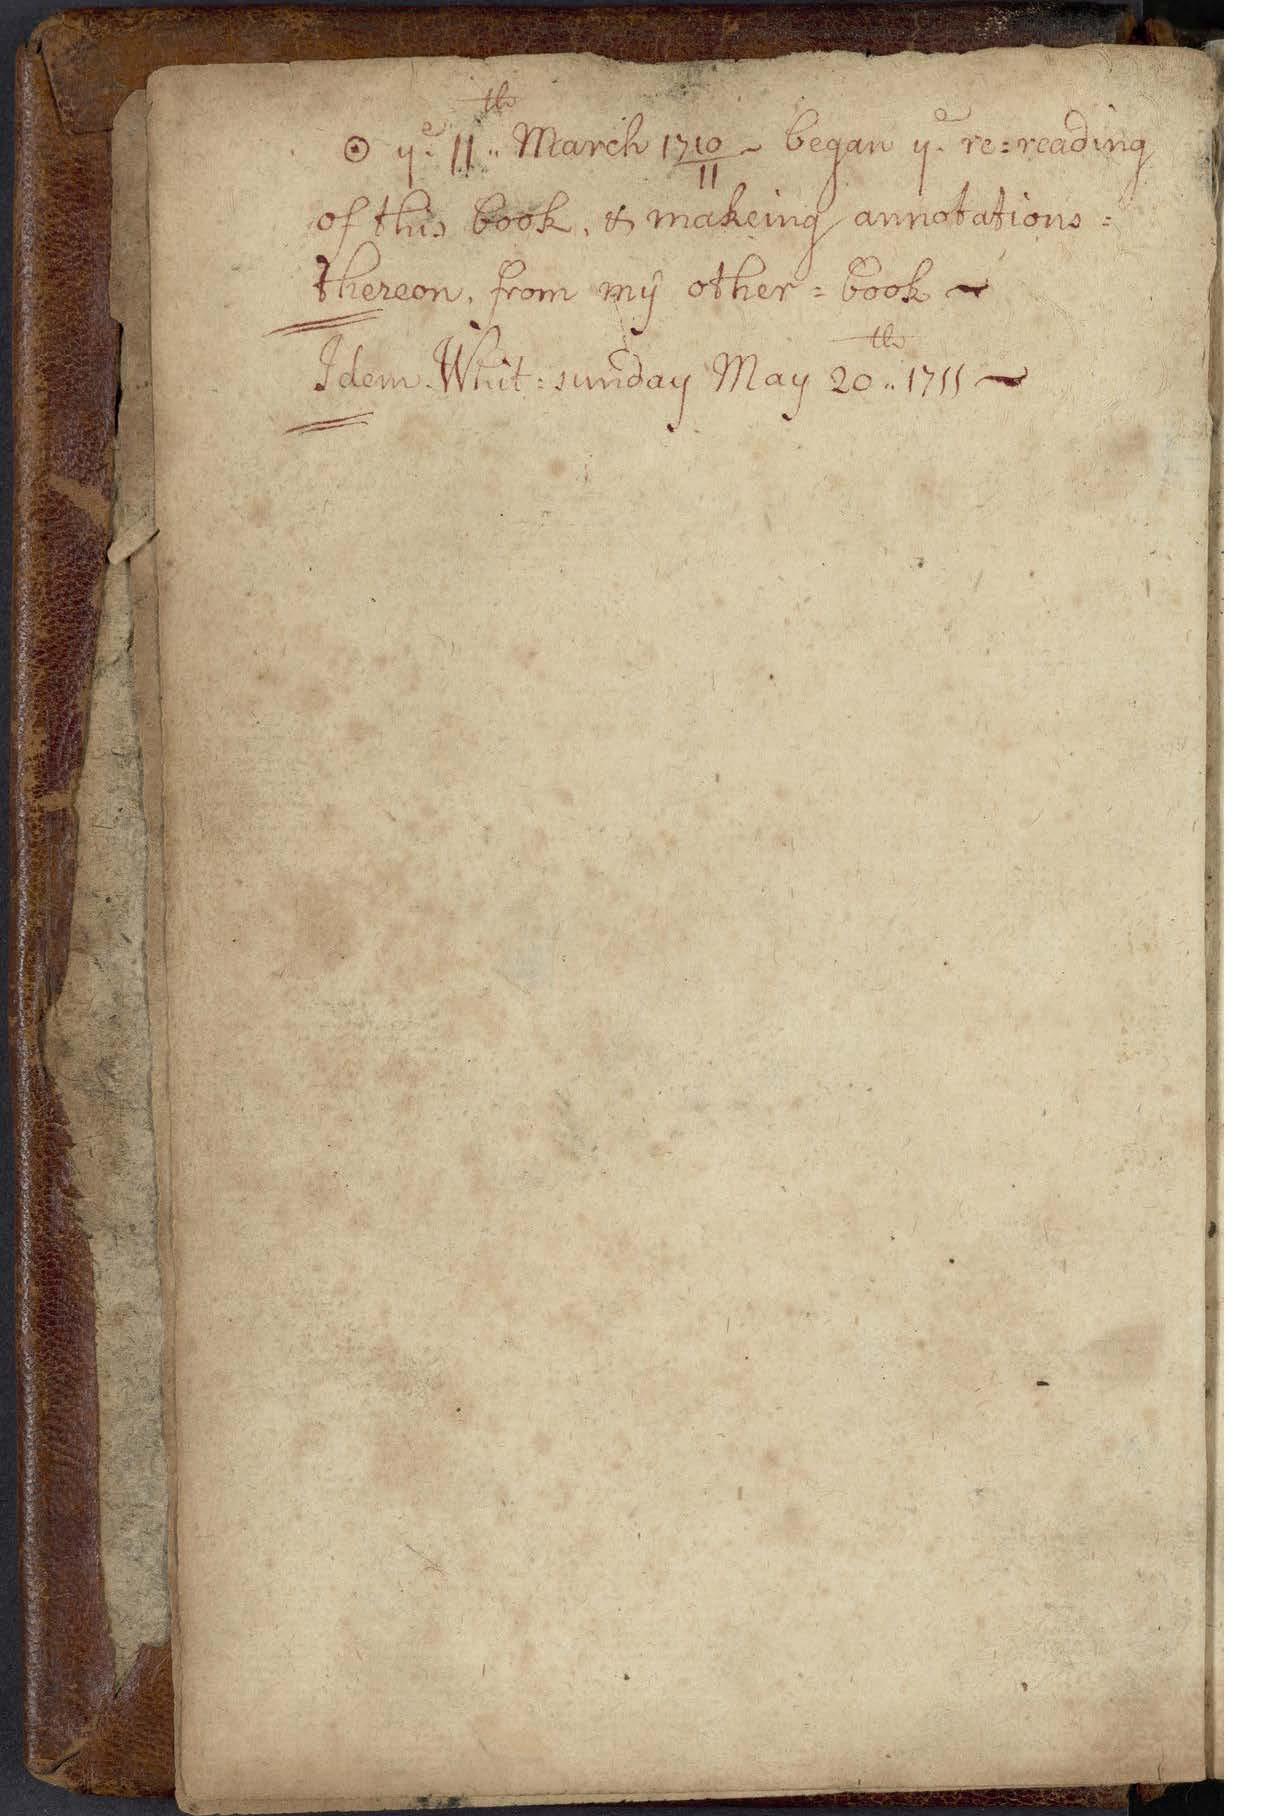 ☉ yᵉ 11ᵗʰ March 1710/11 ~ began yᵉ re=reading
of this book, & makeing annotations =
thereon, from my other = book ~
Idem. Whit=sunday May 20ᵗʰ 1711 ~